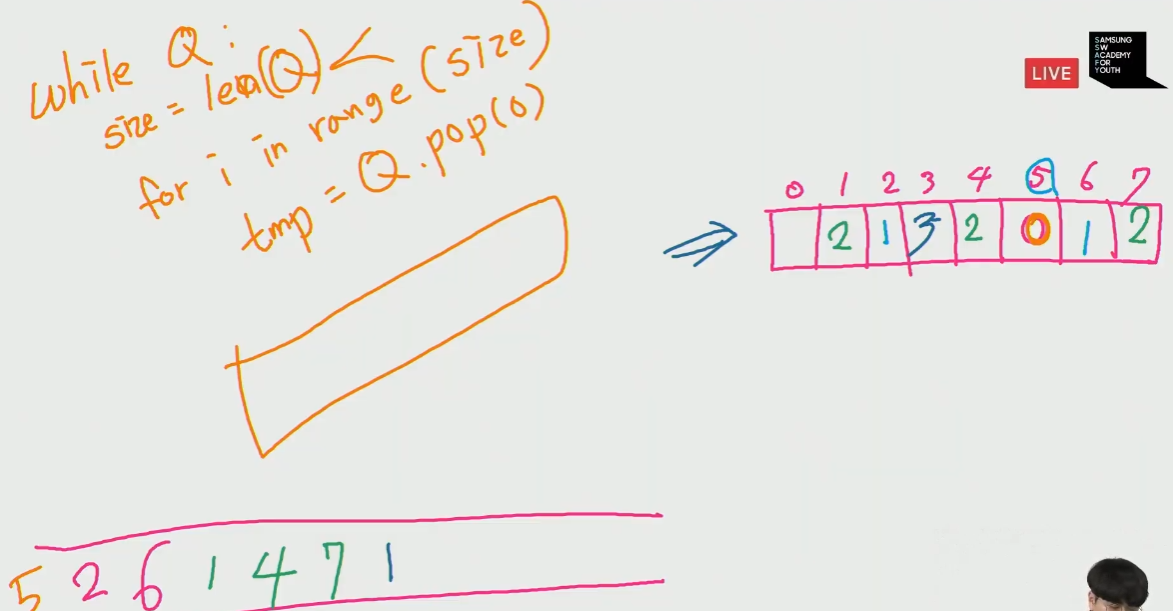 while Q:
size = len(Q) <
for i in range (size)
tmp = Q.pop(0)
LIVE
SAMSUNG
SW
ACADEMY
FOR
YOUTH
0 1 2 3 4 5 6 7
2 1 3 2 0 1 2
5 2 6 1 4 7 1